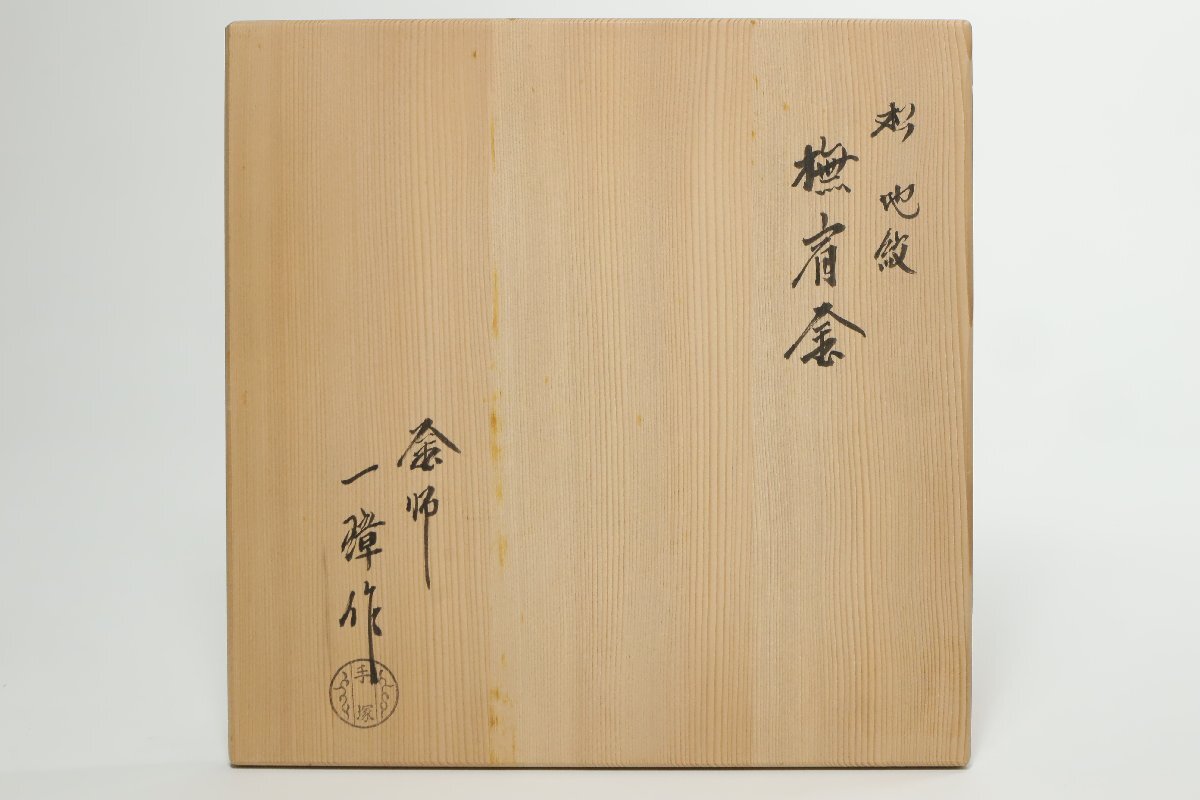 松地紋
撫肩釜
釜師
一璋作
手塚